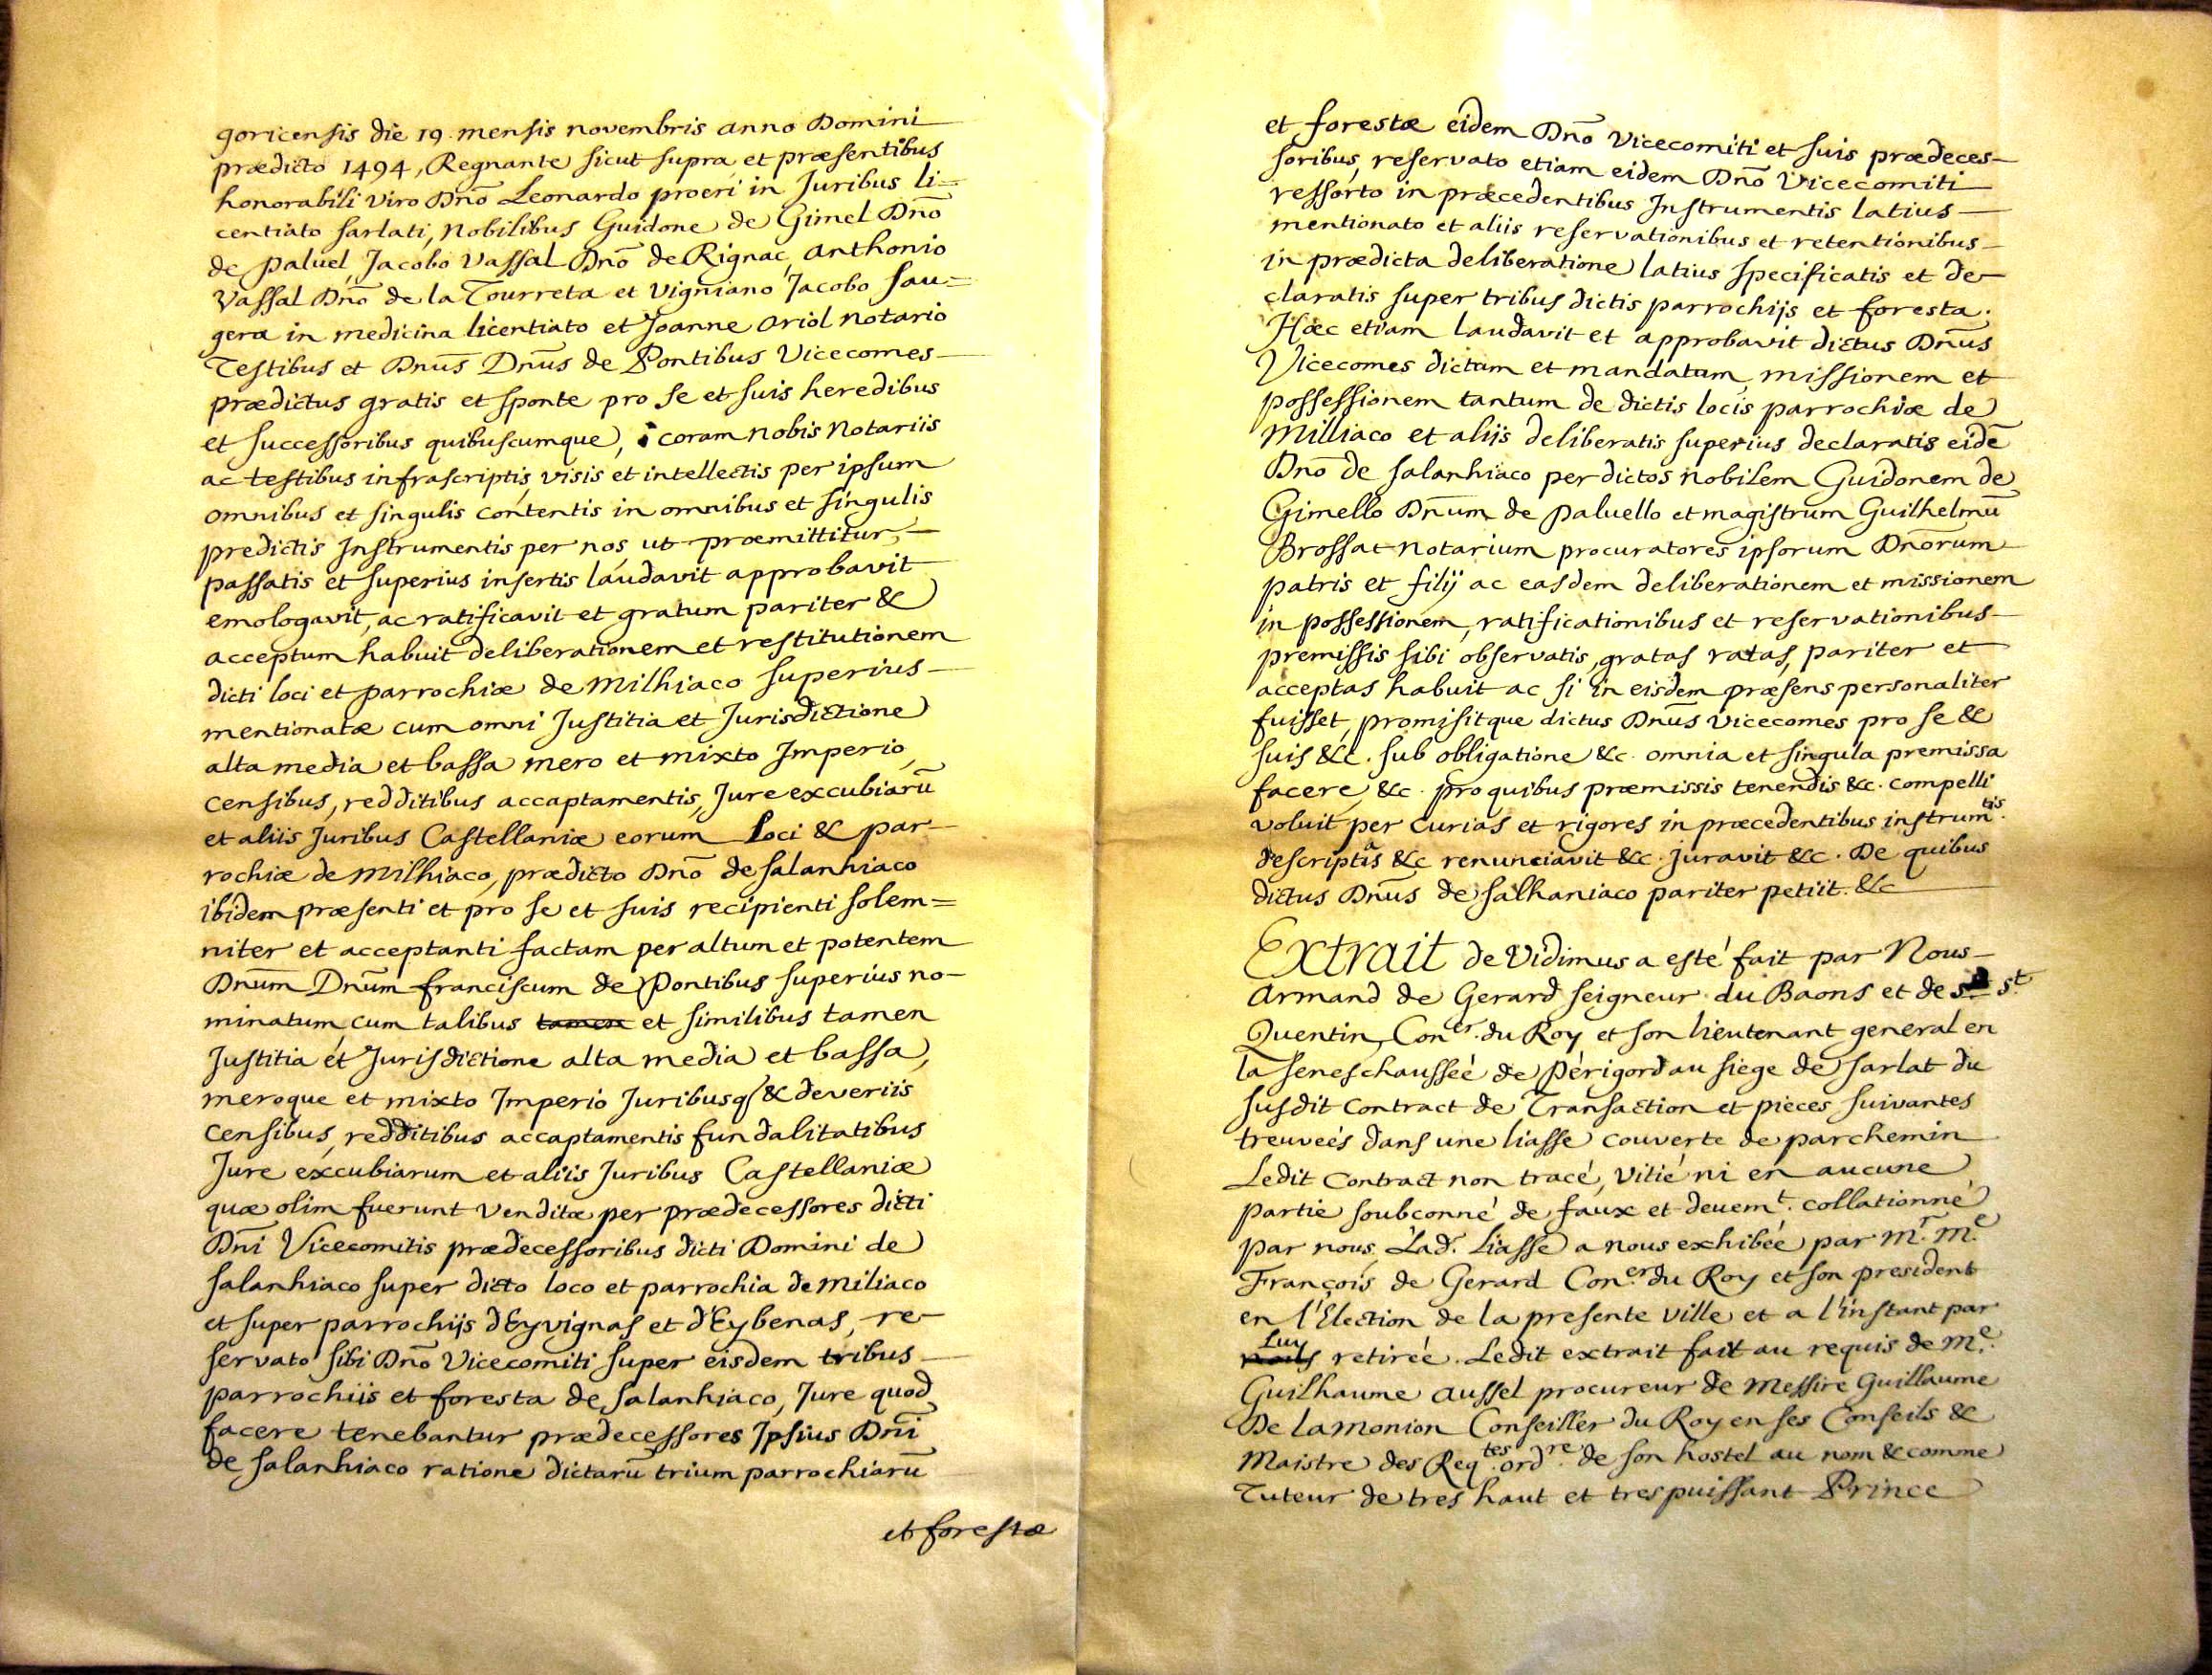 goricensis die 19. mensis novembris anno Domini
prædicto 1494, Regnante sicut supra et præsentibus
honorabili viro Dnō Leonardo proeri in Juribus li=
centiato sarlati, Nobilibus Guidone de Gimel Dnō
de paluel, Jacobo Vassal Dnō de Rignac, Anthonio
Vassal Dnō de la Tourreta et Vigniano Jacobo sau=
gera in medicina licentiato et Joanne Oriol Notario
Testibus et Dnūs Dnūs de Pontibus Vicecomes
prædictus gratis et sponte pro se et suis heredibus
et successoribus quibuscumque, coram nobis Notariis
ac testibus infrascriptis, visis et intellectis per ipsum
omnibus et singulis contentis in omnibus et singulis
predictis Instrumentis per nos, ut præmittitur,
passatis et superius insertis laudavit approbavit
emologavit, ac ratificavit et gratum pariter &
acceptum habuit deliberationem et restitutionem
dicti loci et parrochiæ de Milhiaco superius
mentionatæ cum omni Justitia et Jurisdictione
alta media et bassa mero et mixto Imperio,
censibus, redditibus accaptamentis, Jure excubiarū
et aliis Juribus Castellaniæ eorum Loci & par-
rochiæ de Milhiaco, prædicto Dnō de salanhiaco
ibidem præsenti et pro se et suis recipienti solem=
niter et acceptanti factam per altum et potentem
Dnūm Dnūm franciscum de Pontibus superius no-
minatum, cum talibus tamen et similibus tamen
Justitia et Jurisdictione alta media et bassa,
meroque et mixto Imperio Juribusq & deveriis
censibus, redditibus accaptamentis fundalitatibus
Jure excubiarum et aliis Juribus Castellaniæ
quæ olim fuerunt venditæ per prædecessores dicti
Dnī Vicecomitis prædecessoribus dicti Domini de
salanhiaco super dicto loco et parrochia de Miliaco
et super parrochijs d'Eyvignas et d'Eybenas, re-
servato sibi Dnō Vicecomiti super eisdem tribus
parrochiis et foresta de salanhiaco, Jure quod
facere tenebantur prædecessores Ipsius Dnī
de salanhiaco ratione dictarū trium parrochiarū
et forestæ
et forestæ eidem Dnō Vicecomiti et suis prædeces-
soribus, reservato etiam eidem Dnō Vicecomiti
ressorto in præcedentibus Instrumentis latius
mentionato et aliis reservationibus et retentionibus
in prædicta deliberatione latius specificatis et de-
claratis super tribus dictis parrochijs et foresta.
Hæc etiam laudavit et approbavit dictus Dnūs
Vicecomes dictam et mandatam missionem et
possessionem tantum de dictis locis parrochiæ de
Milliaco et aliis deliberatis superius declaratis eidē
Dnō de salanhiaco per dictos nobilem Guidonem de
Gimello Dnūm de paluello et magistrum Guilhelmū
Brossat notarium procuratores ipsorum Dnōrum
patris et filij ac easdem deliberationem et missionem
in possessionem, ratificationibus et reservationibus
premissis sibi observatis, gratas ratas, pariter et
acceptas habuit ac si in eisdem præsens personaliter
fuisset, promisitque dictus Dnūs Vicecomes pro se &
suis &c. sub obligatione &c. omnia et singula premissa
facere, &c. pro quibus præmissis tenendis &c. compelli
voluit per curias et rigores in præcedentibus instrumtis.
descriptas &c renunciavit &c. juravit &c. De quibus
dictus Dnūs de salhaniaco pariter petiit. &c
Extrait de Vidimus a esté fait par Nous
Armand de Gerard seigneur du Baons et de St
Quentin, Coner. du Roy et son lieutenant general en
la seneschausseé de périgord au siege de sarlat du
susdit contract de Transaction et pieces suivantes
treuveés dans une liasse couverte de parchemin
Ledit Contract non tracé, vitié ni en aucune
partie soubconné de faux et deuemt. collationné
par nous, Lad. liasse a nous exhibée par Mr. Me.
François de Gerard Coner. du Roy et son president
en l'Election de la presente ville et a l'instant par
Luy retirée. Ledit extrait fait au requis de Me.
Guilhaume Aussel procureur de Messire Guillaume
De Lamonion Conseiller du Roy en ses Conseils &
Maistre des Reqtes. ordre. de son hostel au nom & comme
Tuteur de tres haut et tres puissant Prince